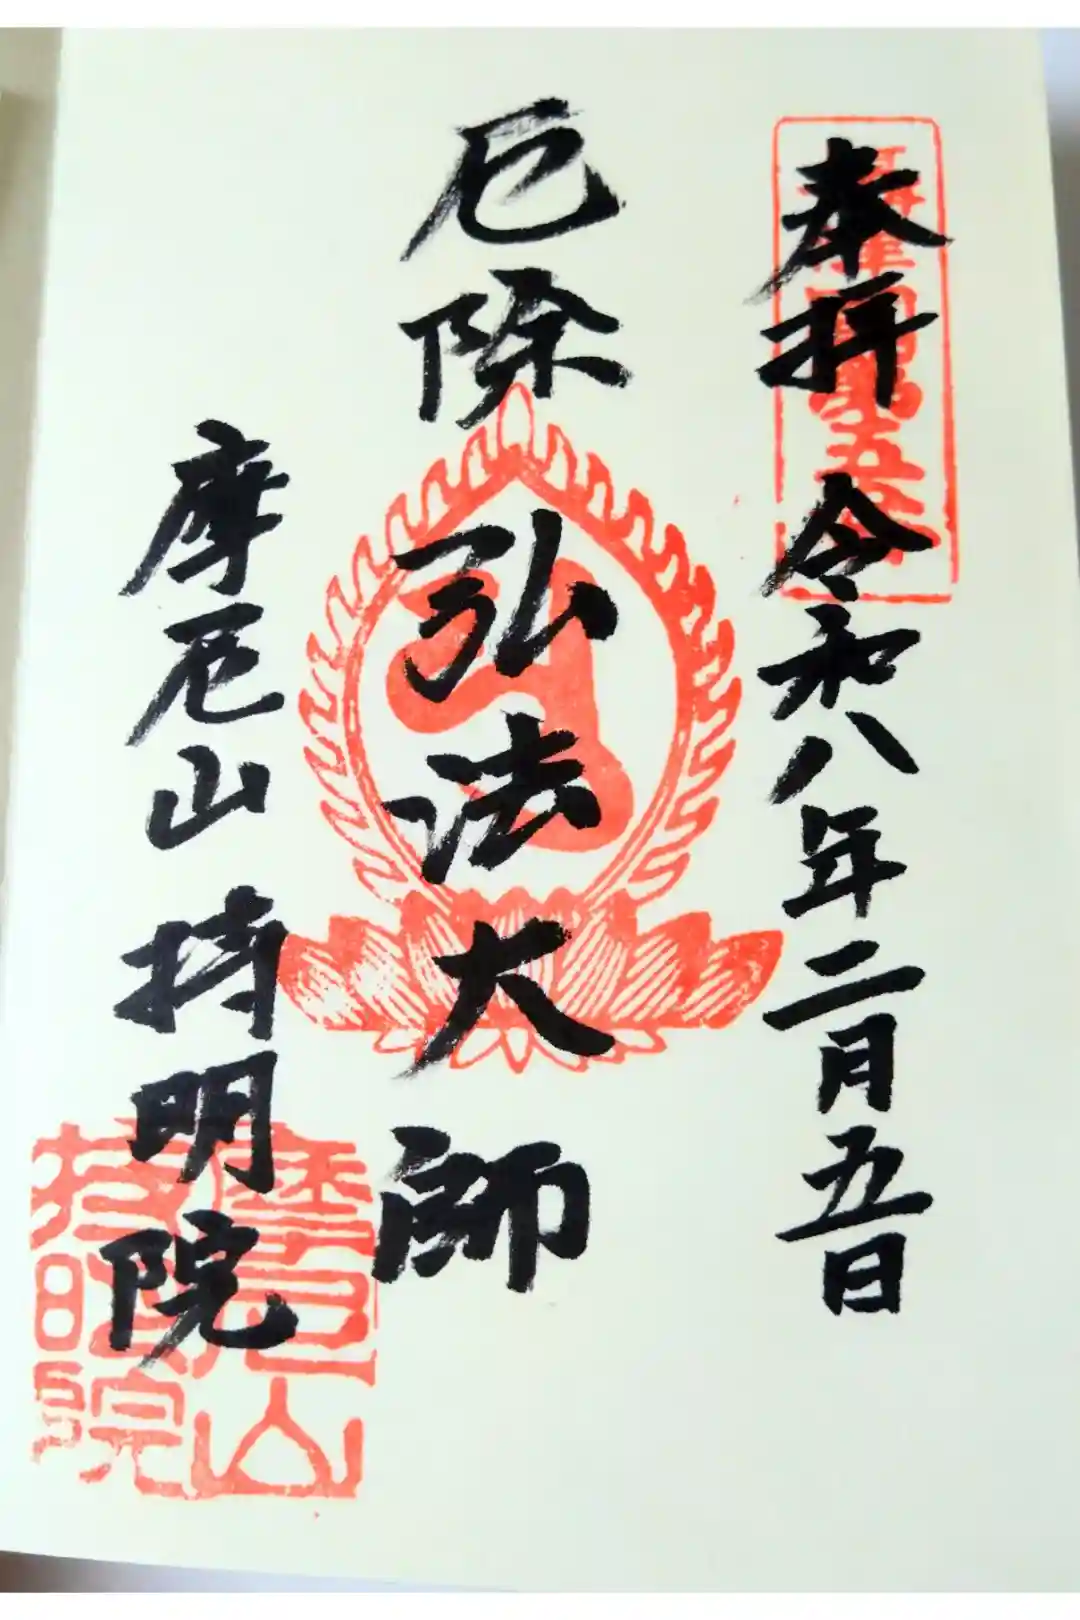 奉拝 令和八年二月五日
厄除 弘法大師
摩厄山 持明院
摩尼山
持明院